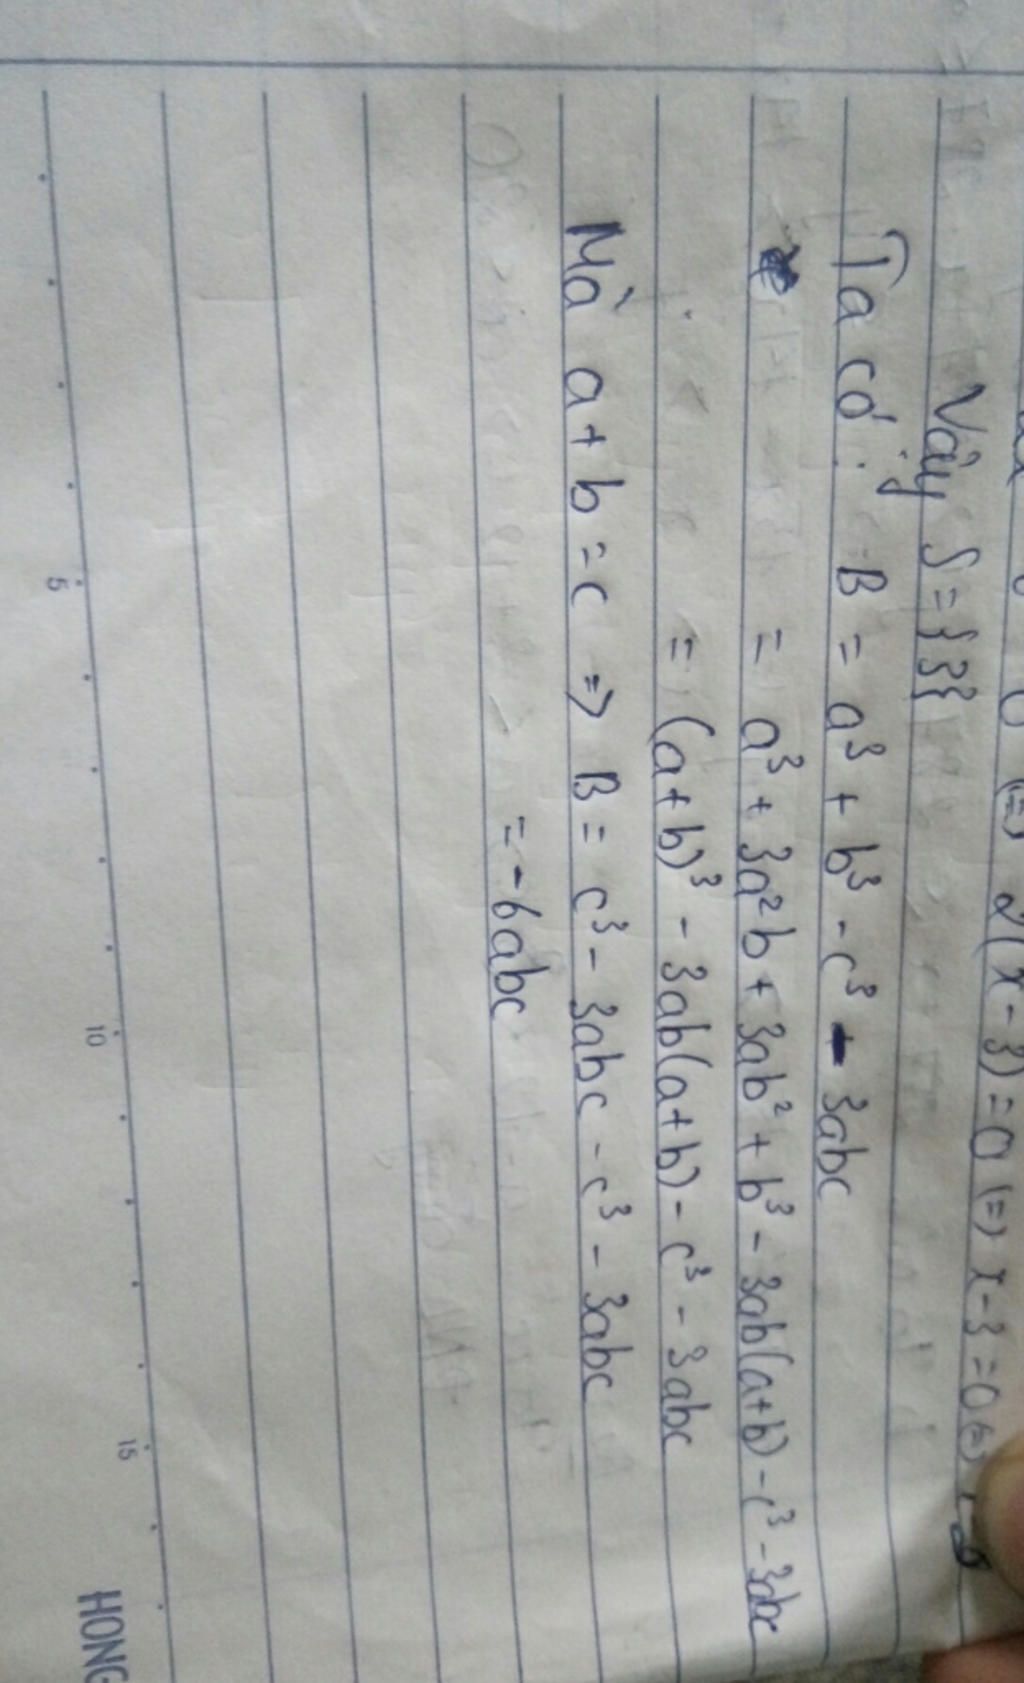 2(x-3)=0 (=) x-3=0 (=)
Vậy S={3}
Ta có: B = a³ + b³ - c³ - 3abc
= a³ + 3a²b + 3ab² + b³ - 3ab(a+b) - c³ - 3abc
= (a+b)³ - 3ab(a+b) - c³ - 3abc
Mà a+b=c => B= c³ - 3abc - c³ - 3abc
= -6abc
5 10 15 HONG